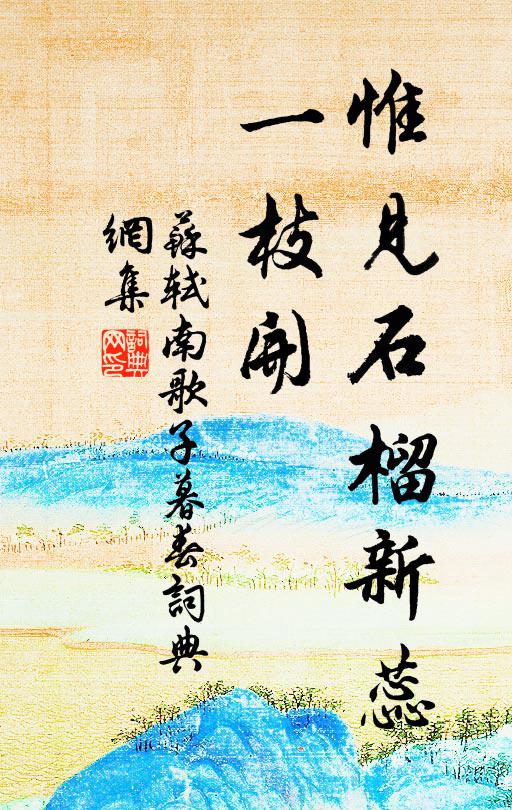 惟見石榴新蕊
一枝開
蘇軾南歌子暮春詞典
網集
詞典
网印